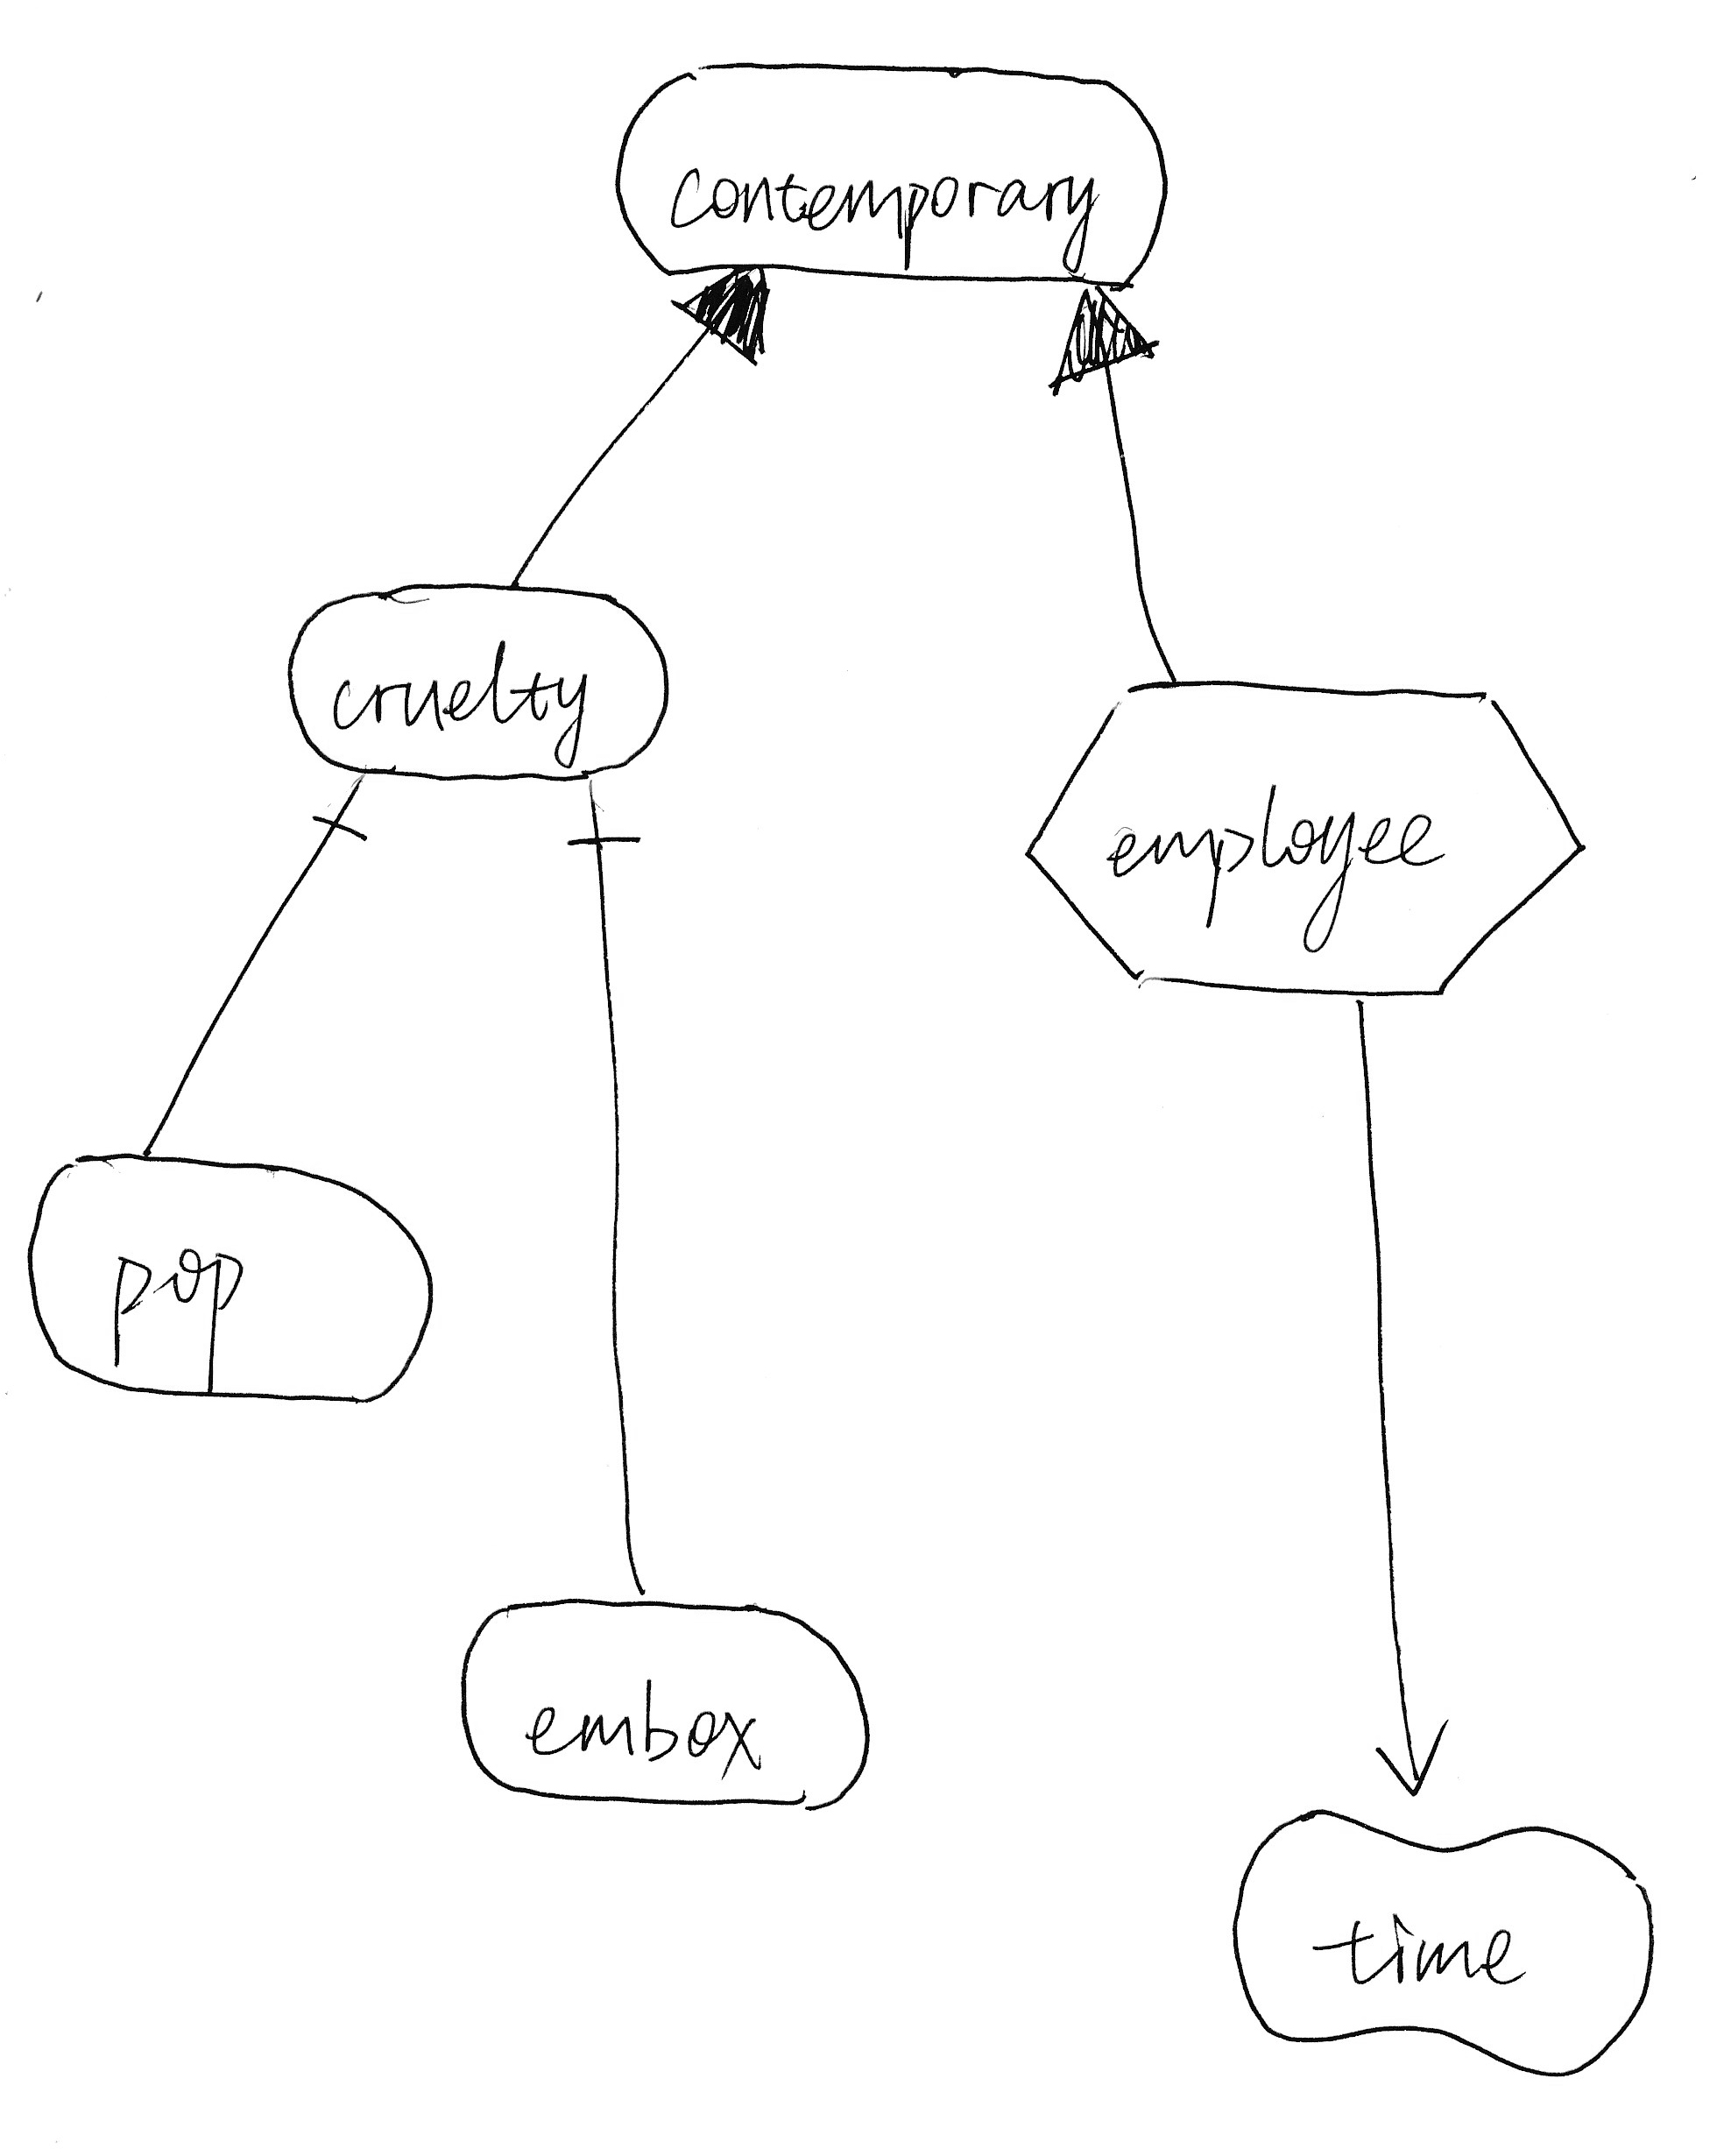 contemporary
cruelty
employee
pop
embox
time